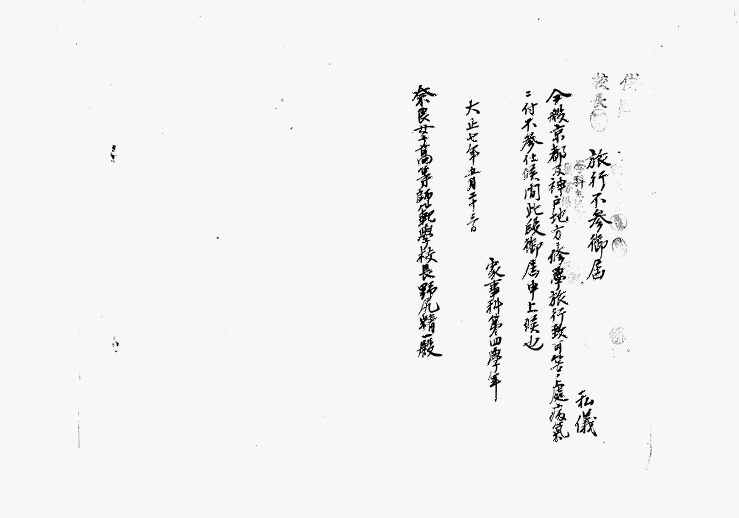 供
校長
旅行不参御届
私儀
今般京都及神戸地方ヘ修學旅行致可筈之處病氣
ニ付不參仕候間此段御届申上候也
大正七年五月二十三日
家事科第四學年
奈良女子高等師範學校長野尻精一殿